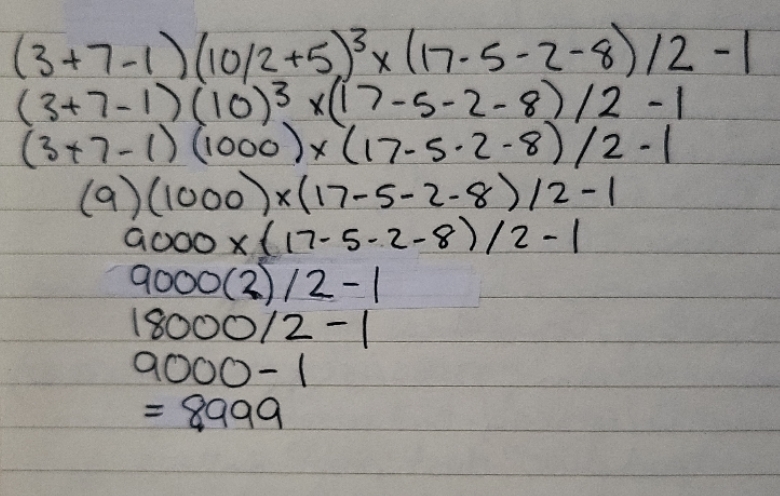 (3+7-1)(10/2+5)³×(17-5-2-8)/2-1
(3+7-1)(10)³×(17-5-2-8)/2-1
(3+7-1)(1000)×(17-5-2-8)/2-1
(9)(1000)×(17-5-2-8)/2-1
9000×(17-5-2-8)/2-1
9000(2)/2-1
18000/2-1
9000-1
= 8999